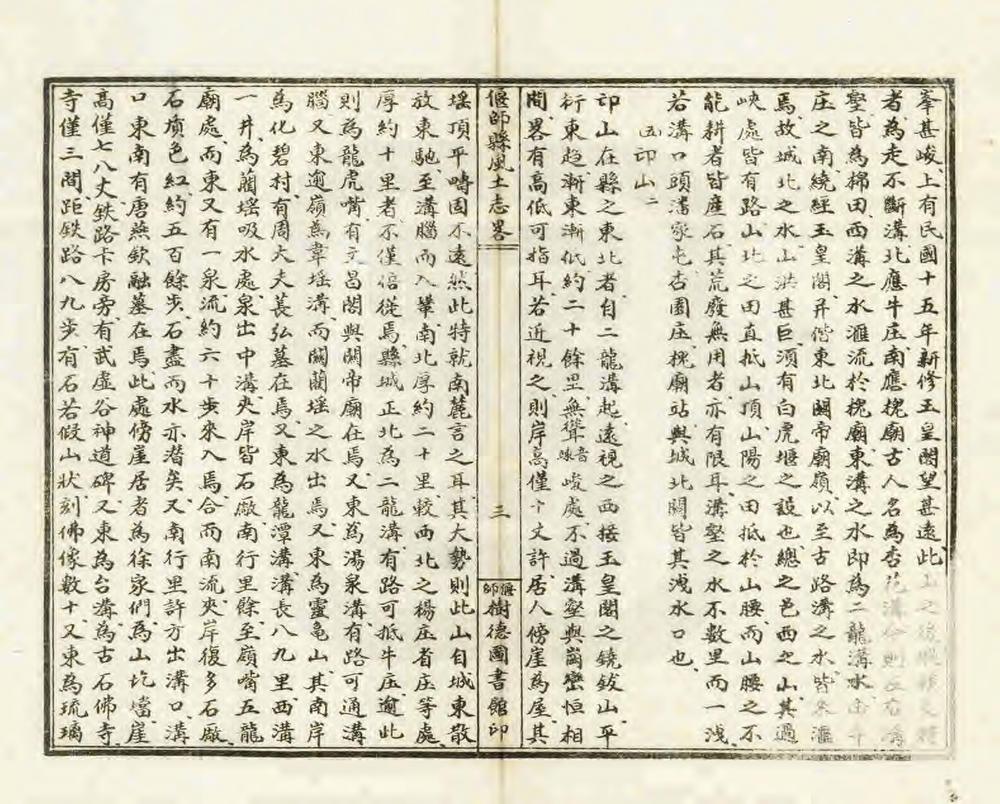 峯甚峻上有民國十五年新修玉皇閣望甚遠此山之後
者為走不斷溝北應牛庄南應槐廟古人名為杏花溝今則左右溝
壑皆為棉田西溝之水滙流於槐廟東溝之水即為二龍溝水
庄之南繞經玉皇閣并偕東北關帝廟嶺以至古路溝之水皆來滙
焉故城北之水山洪甚巨須有白虎堰之設也總之邑西之山其過
峽處皆有路山北之田直抵山頂山陽之田抵於山腰而山腰之不
能耕者皆產石其荒廢無用者亦有限耳溝壑之水不數里而一淺
若溝口頭潘家屯杏園庄槐廟站與城北關皆其洩水口也
邙山二
邙山在縣之東北者自二龍溝起遠視之西接玉皇閣之鐃鈸山平
衍東趋漸東漸低約二十餘里無聳音竦峻處不過溝壑與崗巒恒相
間畧有高低可指耳若近視之則岸高僅十丈許居人傍崖為屋其
偃師縣風土志畧
三
偃師樹德圖書館印
塬頂平疇固不遠然此特就南麓言之耳其大勢則此山自城東散
放東馳至溝腦而入鞏南北厚約二十里較西北之楊庄省庄等處
厚約十里者不僅倍徙焉縣城正北為二龍溝有路可抵牛庄逾此
則為龍虎嘴有文昌閣與關帝廟在焉又東為湯泉溝有路可通溝
腦又東逾嶺為韋塬溝而關藺塬之水出焉又東為靈龜山其南岸
為化碧村有周大夫萇弘墓在焉又東為龍潭溝溝長八九里西溝
一井為藺塬吸水處泉出中溝夾岸皆石廠南行里餘至嶺嘴五龍
廟處而東又有一泉流約六十步來入焉合而南流夾岸復多石廠
石質色紅約五百餘步石盡而水亦潜矣又南行里許方出溝口溝
口東南有唐燕欽融墓在焉此處傍崖居者為徐家們為山圪壋崖
高僅七八丈鉄路卡房旁有武虛谷神道碑又東為台溝為古石佛寺
寺僅三間距鉄路八九步有石若假山狀刻佛像數十又東為琉璃